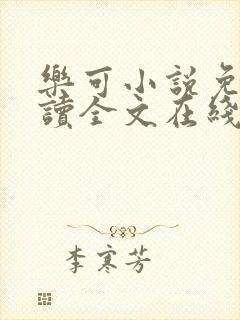 樂可小說免
讀全文在綫
李寒芳